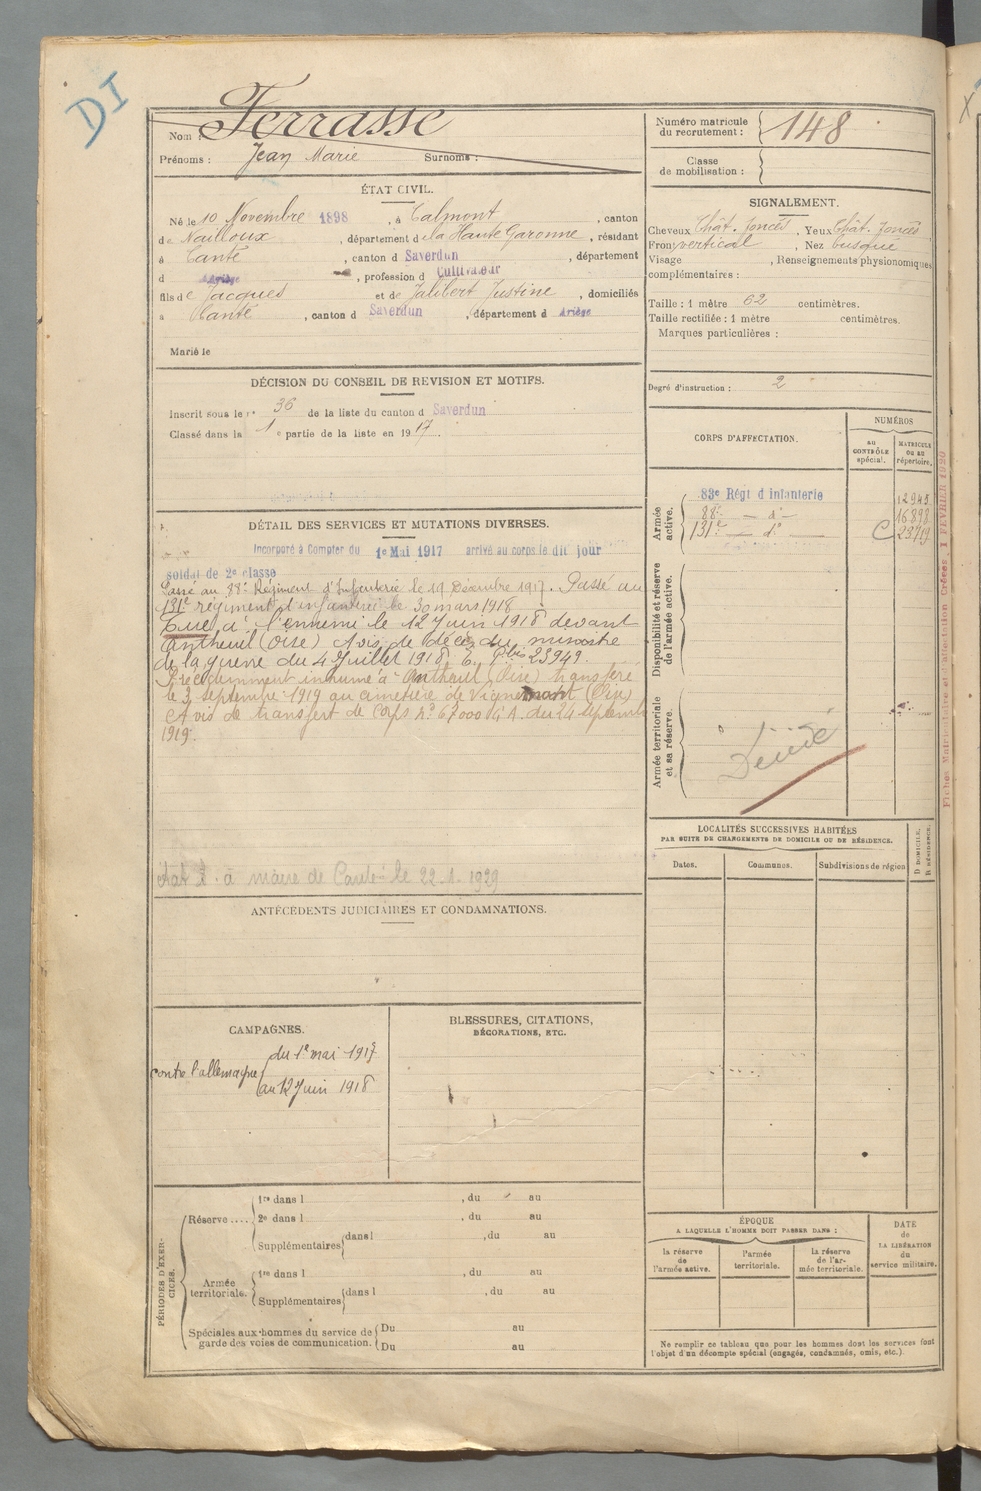 DI
Nom : Terrasse
Prénoms : Jean Marie Surnoms :
Numéro matricule du recrutement : 148
Classe de mobilisation :
ÉTAT CIVIL.
Né le 10 Novembre 1898, à Calmont, canton
de Nailloux, département de la Haute Garonne, résidant
à Canté, canton d Saverdun, département
d Ariège, profession d Cultivateur
fils de Jacques et de Jalibert Justine, domiciliés
à Canté, canton d Saverdun, département d Ariège
Marié le
SIGNALEMENT.
Cheveux Chât. foncés, Yeux Chât. foncés
Front vertical, Nez busqué
Visage , Renseignements physionomiques
complémentaires :
Taille : 1 mètre 62 centimètres.
Taille rectifiée : 1 mètre centimètres.
Marques particulières :
Degré d'instruction : 2
DÉCISION DU CONSEIL DE REVISION ET MOTIFS.
Inscrit sous le n° 36 de la liste du canton d Saverdun
Classé dans la 1 e partie de la liste en 1917.
DÉTAIL DES SERVICES ET MUTATIONS DIVERSES.
Incorporé à Compter du 1e Mai 1917 arrivé au corps le dit jour
soldat de 2e classe
Passé au 88e Régiment d'Infanterie le 19 Décembre 1917. Passé au
131e régiment d'infanterie le 30 mars 1918
Tué à l'ennemi le 12 Juin 1918 devant
Antheuil (Oise) Avis de décès du ministre
de la guerre du 4 Juillet 1918 23949.
Précédemment inhumé à Antheuil (Oise) transféré
le 3 septembre 1919 au cimetière de Vignemont (Oise)
Avis de transfert de corps n° 67000 du 24 septembre
1919.
à maire de Canté le 22.1.1929
CORPS D'AFFECTATION.
NUMÉROS
AU CONTRÔLE spécial.
MATRICULE OU AU répertoire.
Armée active.
83e Régt d infanterie 12945
88e — d° — 16898
131e — d° — C 23719
Disponibilité et réserve de l'armée active.
Armée territoriale et sa réserve.
Fiches Matriculaire et d'affectation Créées 1 FÉVRIER 1920
LOCALITÉS SUCCESSIVES HABITÉES
PAR SUITE DE CHANGEMENTS DE DOMICILE OU DE RÉSIDENCE.
Dates. Communes. Subdivisions de région
D DOMICILE, R RÉSIDENCE.
ANTÉCÉDENTS JUDICIAIRES ET CONDAMNATIONS.
CAMPAGNES.
contre l'allemagne du 1e mai 1917
au 12 Juin 1918
BLESSURES, CITATIONS,
DÉCORATIONS, ETC.
PÉRIODES D'EXERCICES.
Réserve....
1re dans l , du au
2e dans l , du au
Supplémentaires dans l , du au
Armée territoriale.
1re dans l , du au
Supplémentaires dans l , du au
Spéciales aux hommes du service de garde des voies de communication.
Du au
Du au
ÉPOQUE
A LAQUELLE L'HOMME DOIT PASSER DANS :
la réserve de l'armée active.
l'armée territoriale.
la réserve de l'armée territoriale.
DATE de LA LIBÉRATION du service militaire.
Ne remplir ce tableau que pour les hommes dont les services font
l'objet d'un décompte spécial (engagés, condamnés, omis, etc.).